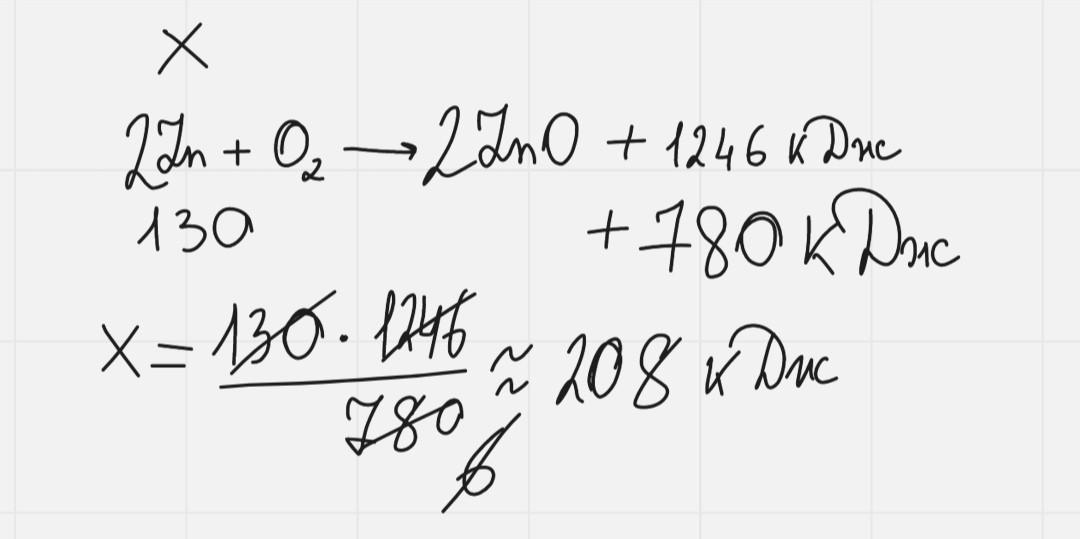 X
2Zn + O₂ → 2ZnO + 1246 кДж
130 + 780 кДж
X = 130 · 1246 / 780 6 ≈ 208 кДж